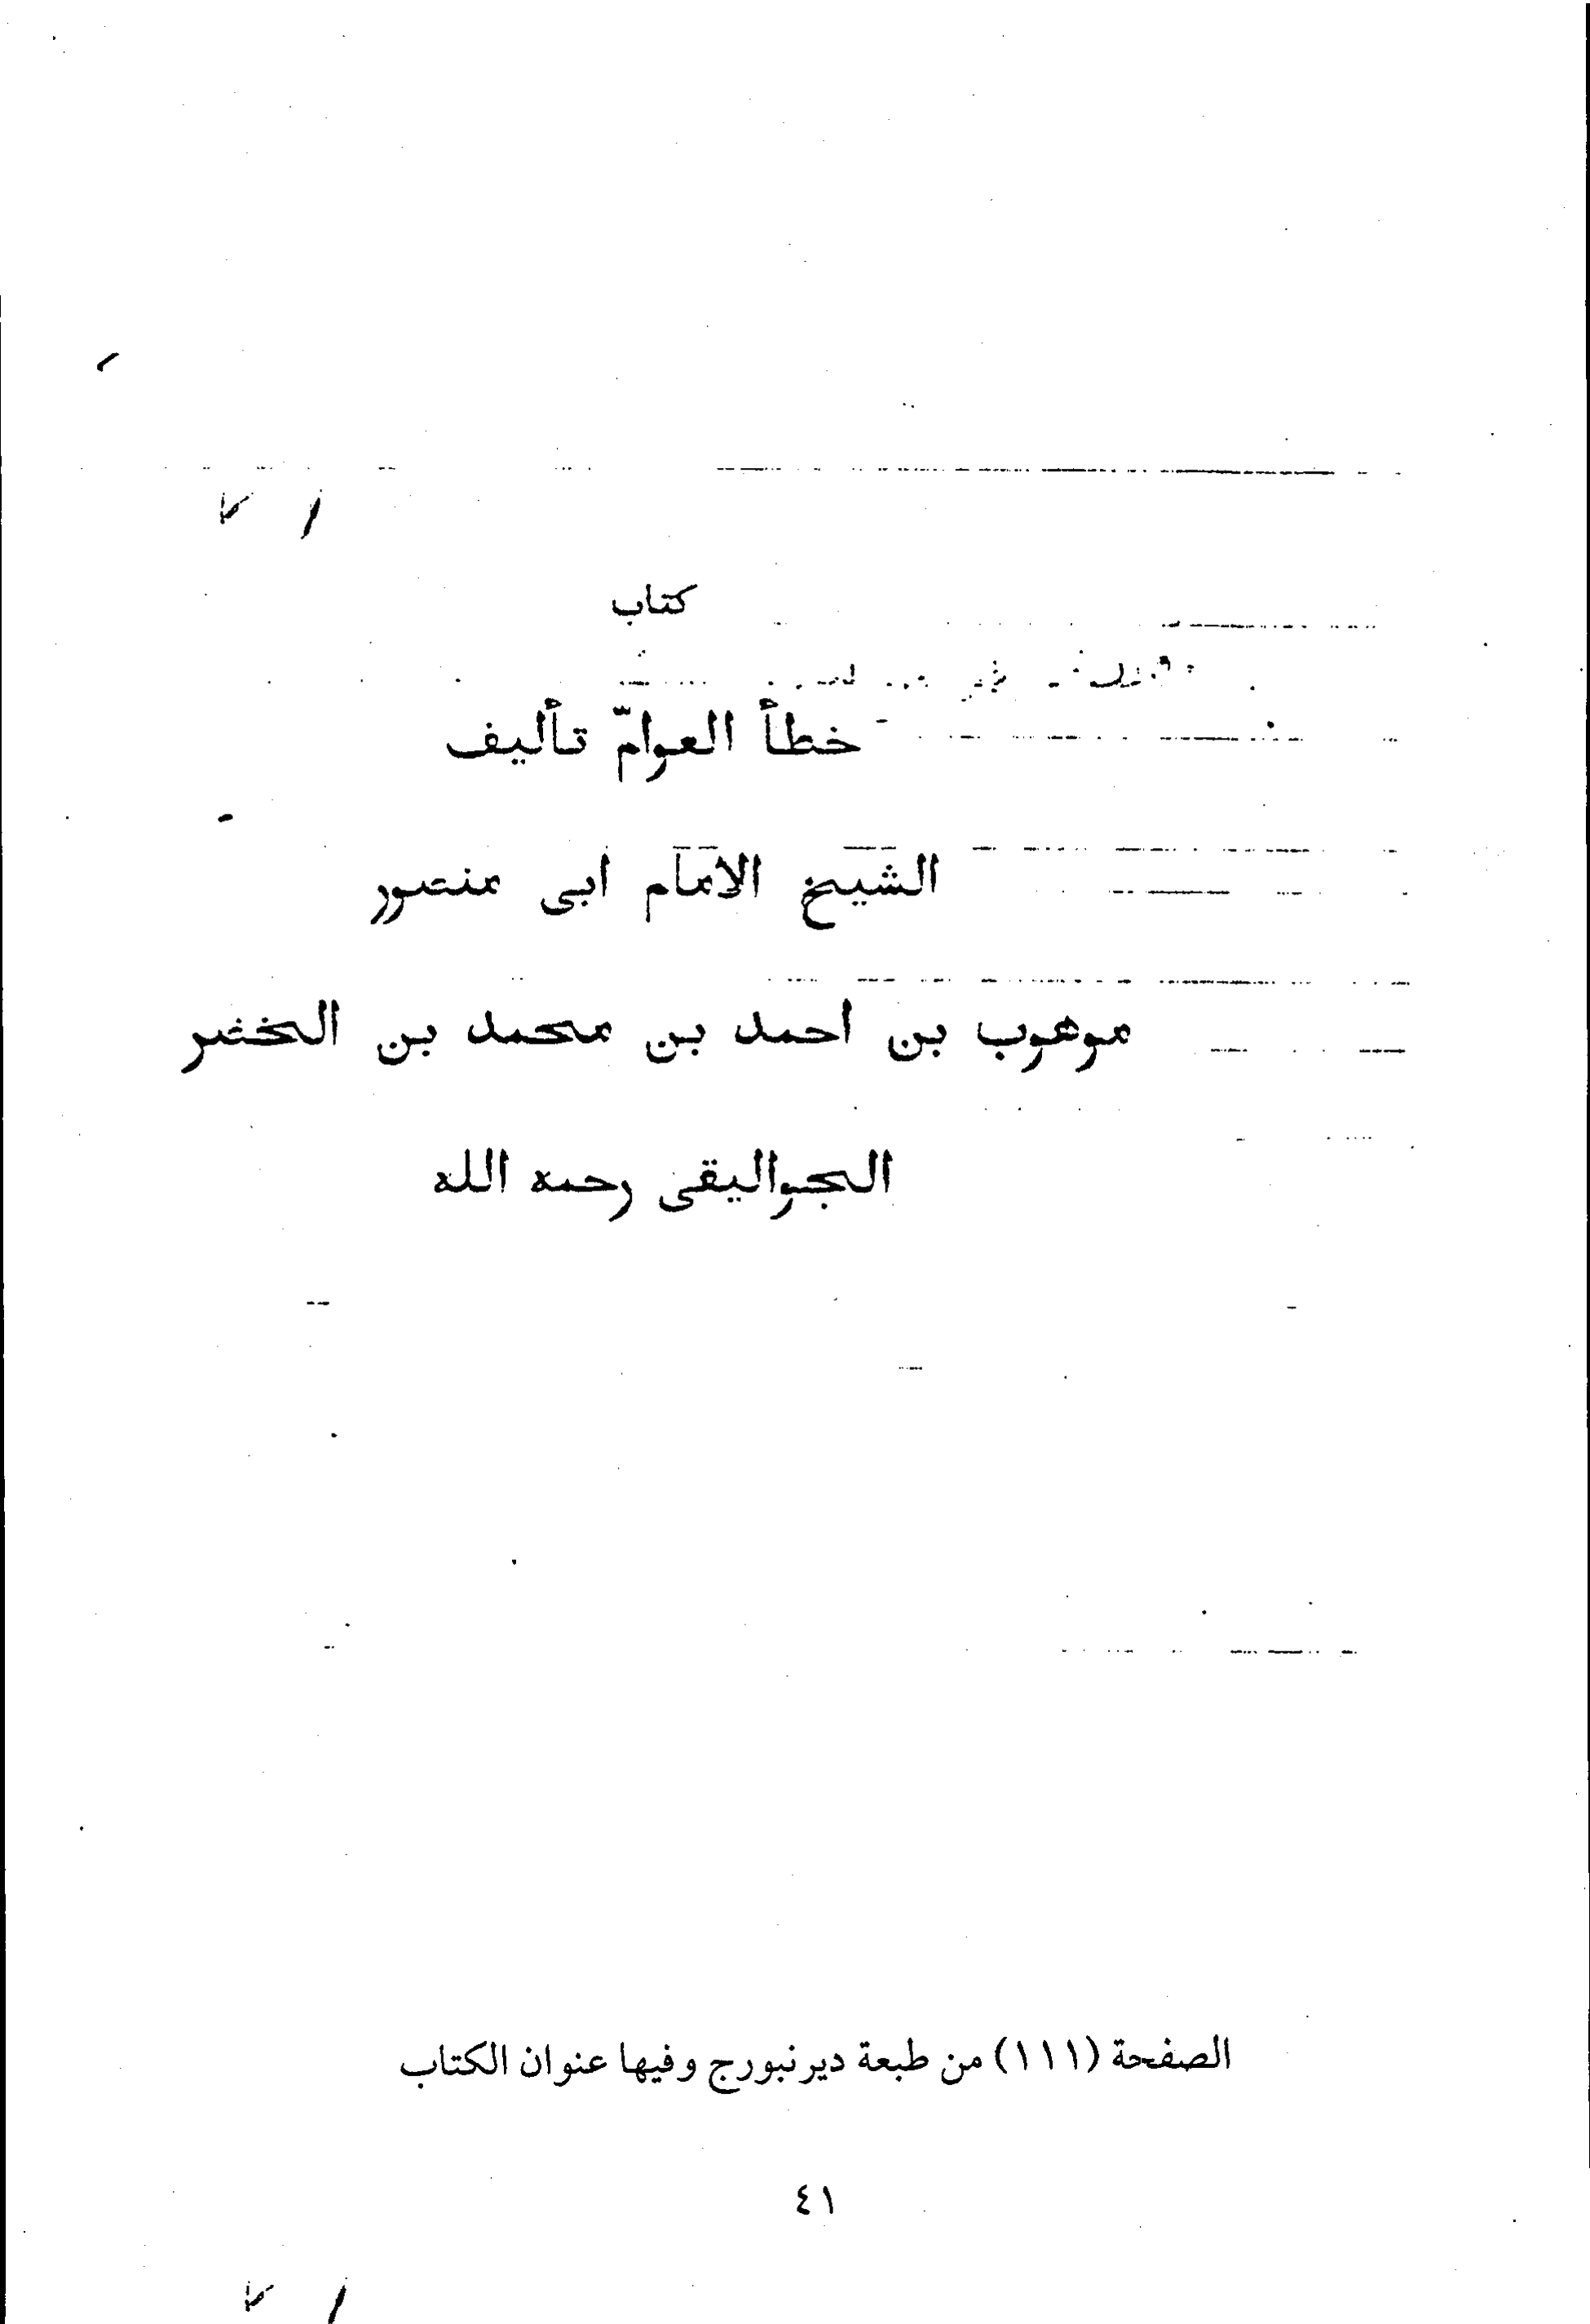 كتاب
خطأ العوامّ تأليف
الشيخ الامام ابى منصور
موهوب بن احمد بن محمد بن الخضر
الجواليقى رحمه الله
الصفحة (١١١) من طبعة ديرنبورج وفيها عنوان الكتاب
٤١